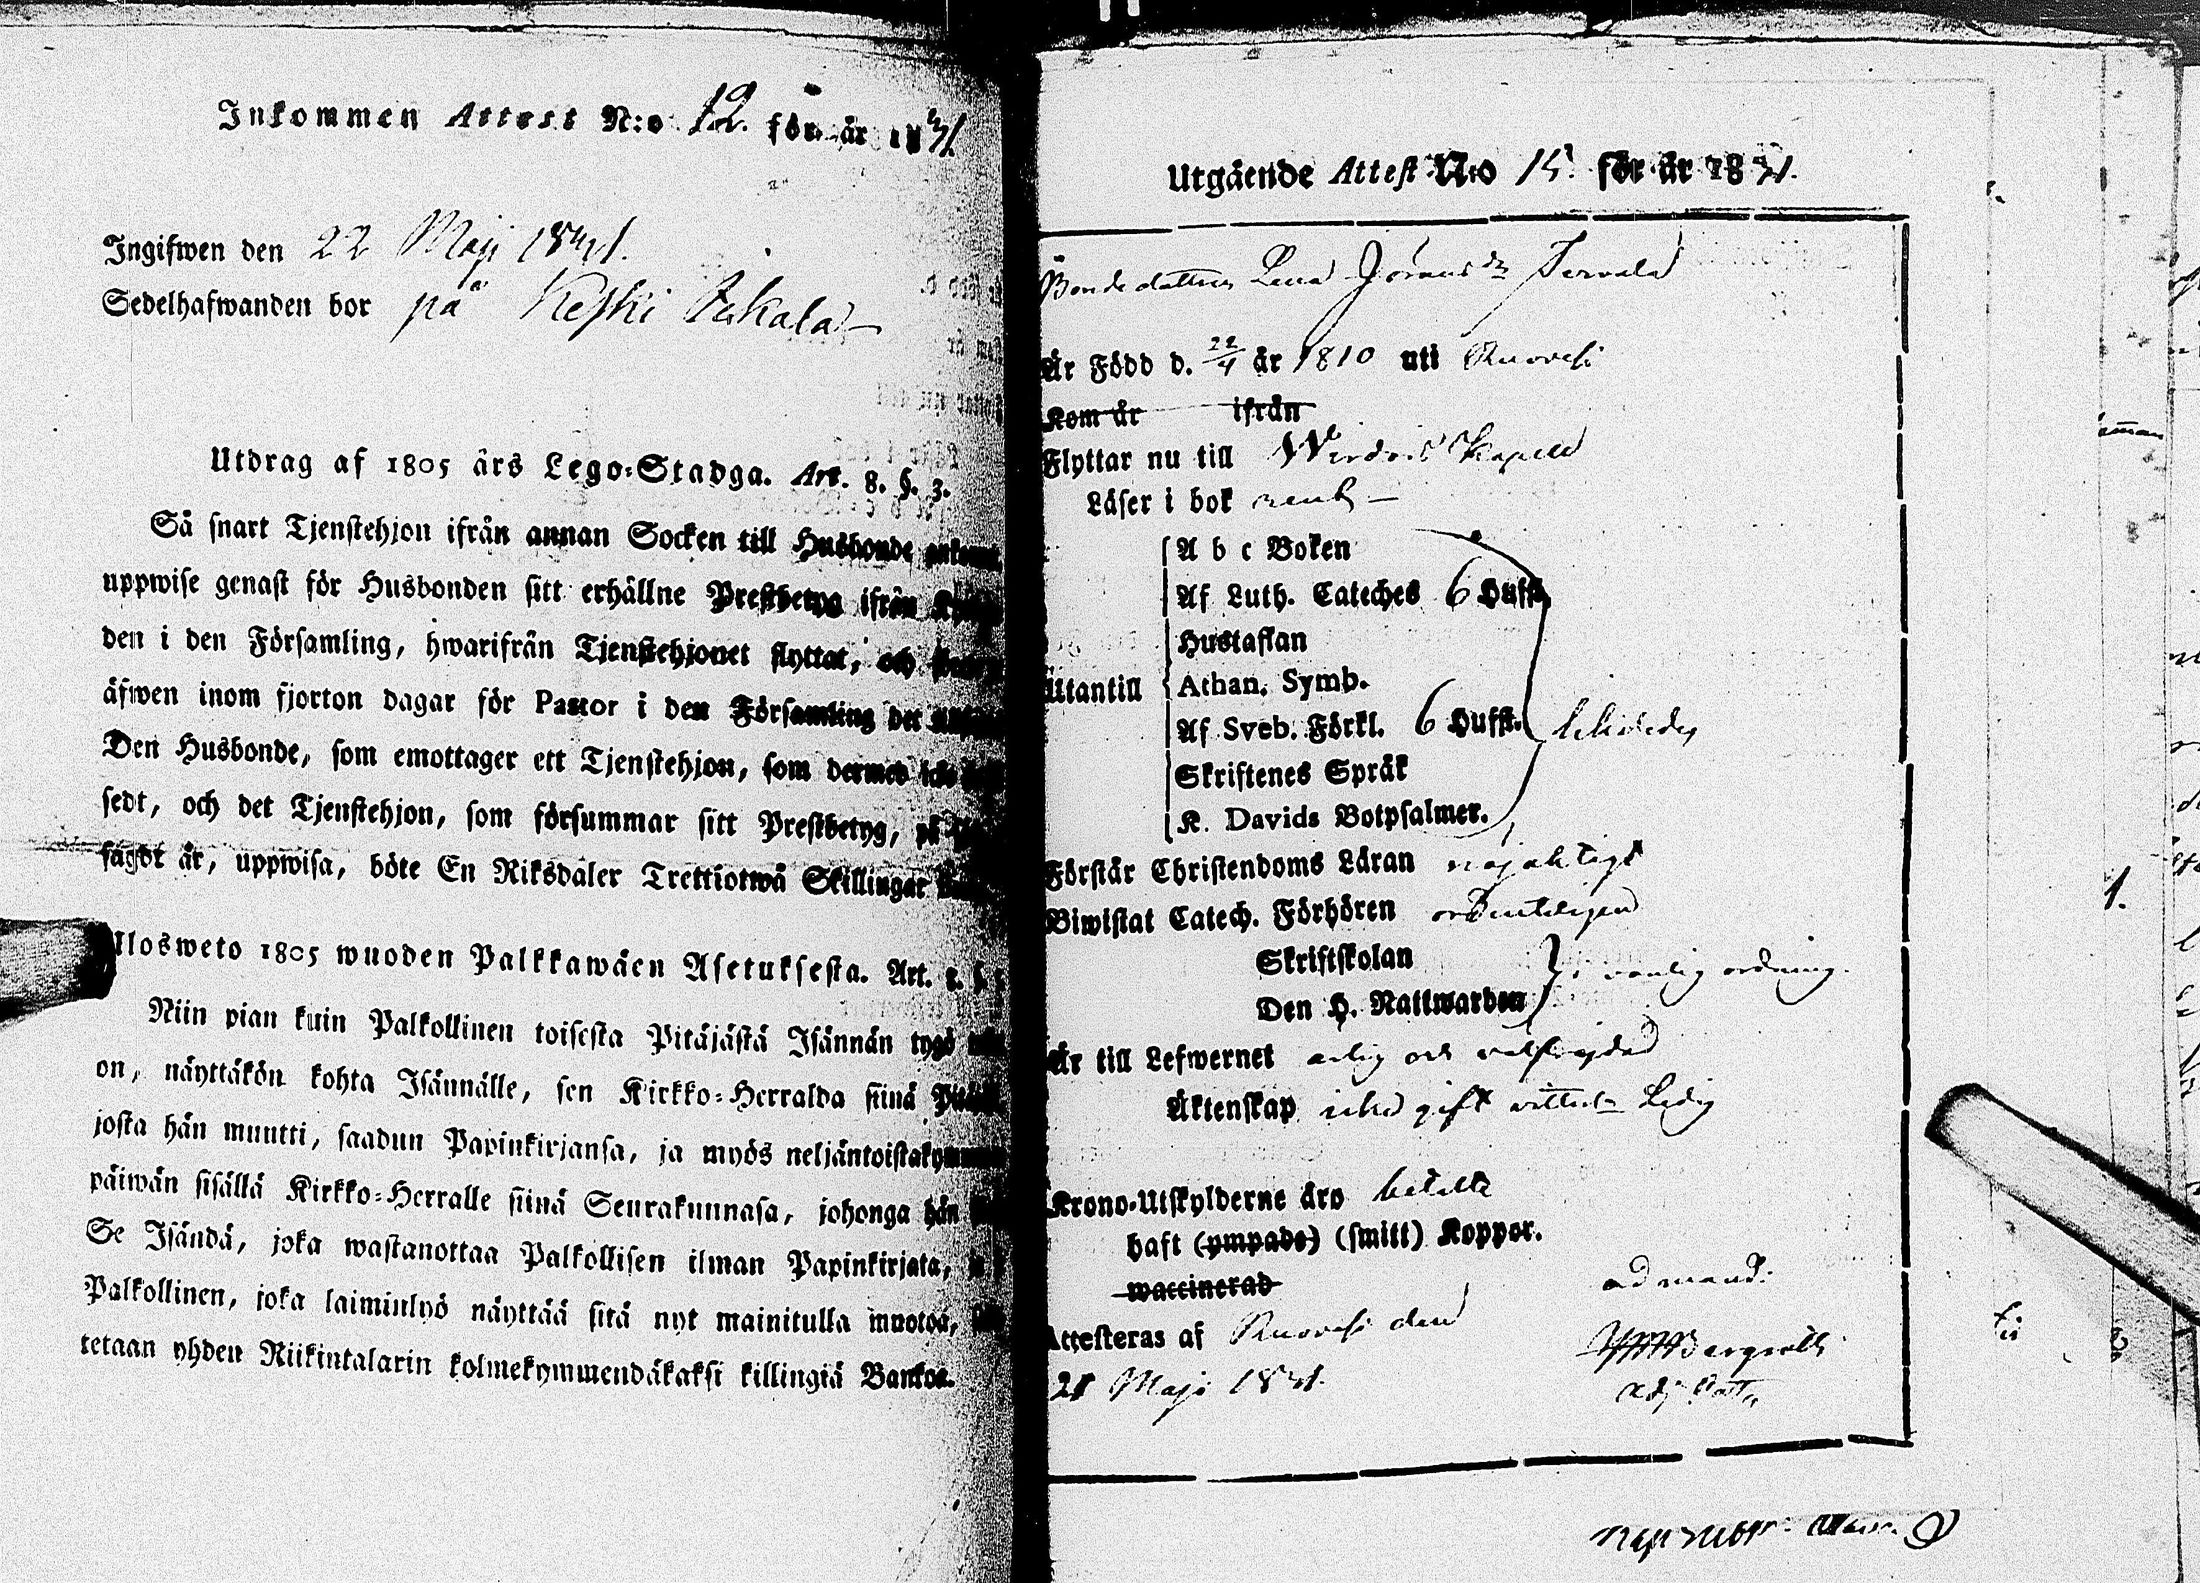 Inkommen Attest N:o 12. för år 1841.
Ingifwen den 22 Maji 1841.
Sedelhafwanden bor på Keski
Utdrag af 1805 års Lego-Stadga. Art. 8. §. 3.
Så snart Tjenstehjon ifrån annan Socken till Husbonde
uppwise genast för Husbonden sitt erhållne Prestbetyg ifrån
den i den Församling, hwarifrån Tjenstehjonet flyttat, och
äfwen inom fjorton dagar för Pastor i den Församling det
Den Husbonde, som emottager ett Tjenstehjon, som dermed icke
sedt, och det Tjenstehjon, som försummar sitt Prestbetyg, på
sagdt är, uppwisa, böte En Riksdaler Trettiotwå Skillingar
Ulosweto 1805 wuoden Palkkawäen Asetuksesta. Art. 8. §.
Niin pian kuin Palkollinen toisesta Pitäjästä Isännän tygö
on, näyttäkön kohta Isännälle, sen Kirkko-Herralda siinä
josta hän muutti, saadun Papinkirjansa, ja myös neljäntoistakymmenen
päiwän sisällä Kirkko-Herralle siinä Seurakunnasa, johonga hän
Se Isändä, joka wastanottaa Palkollisen ilman Papinkirjata,
Palkollinen, joka laiminlyö näyttää sitä nyt mainitulla muotoa,
tetaan yhden Riikintalarin kolmekymmendäkaksi killingiä Bankos.
Utgående Attest N:o 15. för år 1841.
Bondedottren Lena Jöransdr
Är Född d. 22/4 år 1810 uti Ruovesi
Kom år ifrån
Flyttar nu till Wirdois Kapell
Läser i bok rent —
A b c Boken
Af Luth. Cateches 6 Hufst.
Hustaflan
Utantill Athan. Symb.
Af Sveb. Förkl. 6 Hufst.
Skriftenes Språk
K. Davids Botpsalmer.
Förstår Christendoms Läran nöjaktigt
Biwistat Catech. Förhören ordentligen
Skriftskolan
i vanlig ordning.
Den H. Nattwarden
Är till Lefwernet ärlig och välfrejdad
Äktenskap icke gift Ledig
Krono-Utskylderne äro betalte
haft (ympade) (smitt) Koppor.
waccinerad
ad mand.
Attesteras af Ruovesi den
Bergroth
21 Maji 1841.
Adj.
1.